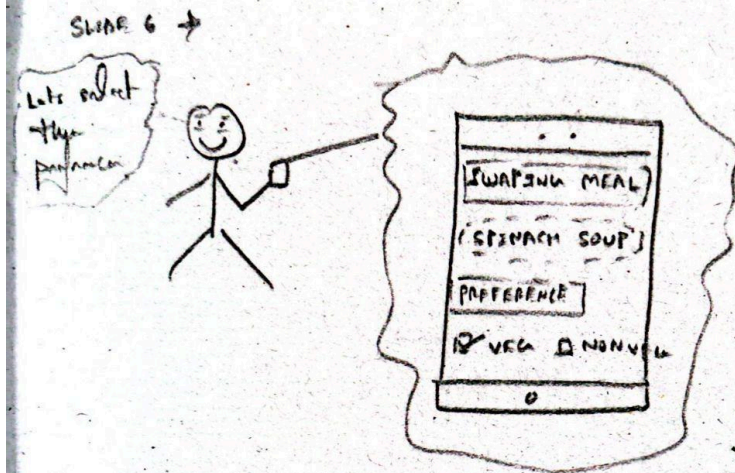 SLIDE 6 →
Lets select
the
SWAPING MEAL
SPINACH SOUP
PREFERENCE
VEG NONVEG